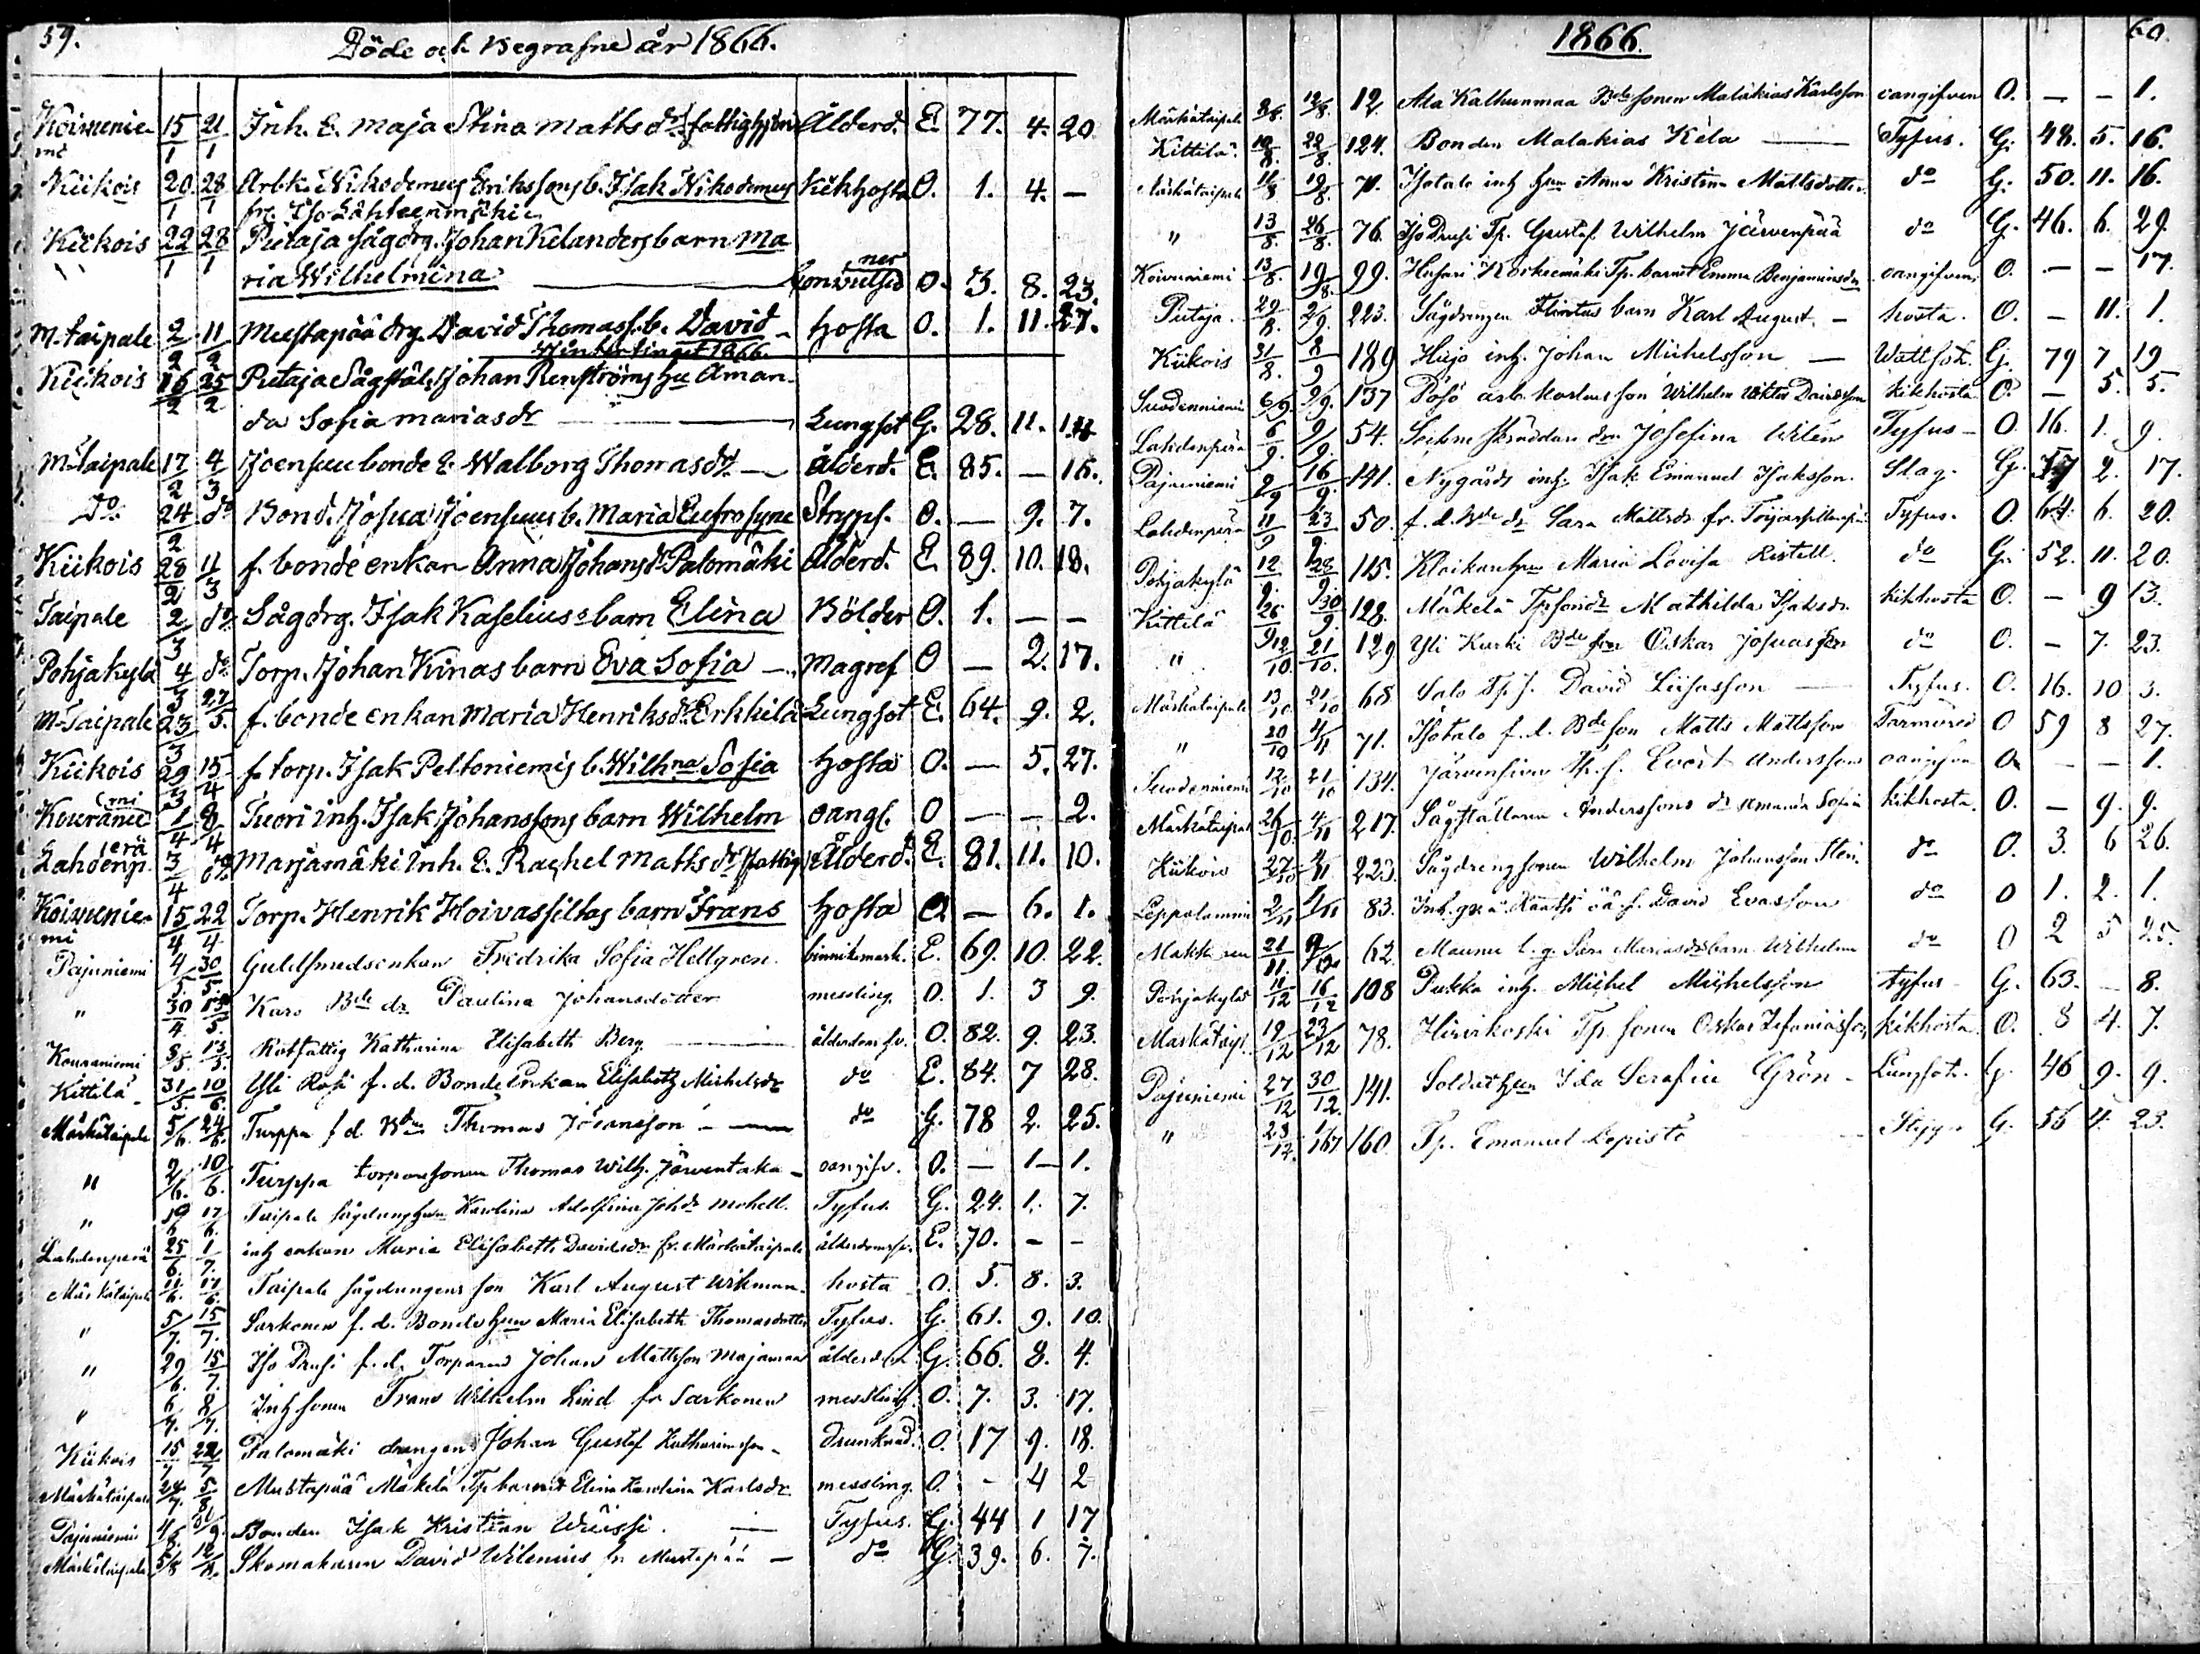 59.
Döde och Begrafne år 1866.
Koivunie- 15/1 21/1 Inh. E. Maja Stina Matts dr. fattighjon Ålderd. E. 77. 4. 20.
mi
Kiikois 20/1 28/1 Arbk: Nikodemus Erikssons b. Isak Nikodemus Kikhosta O. 1. 4. -
fr. Iso Lähteenmäki
Kiikois 22/1 28/1 Putaja sågdrg. Johan Kelanders barn Ma
ria Wilhelmina Convulsioner O. 3. 8. 23.
M-taipale 2/2 11/2 Mustapää drg. David Thomass. b. David - hosta O. 1. 11. 27.
Wintertinget 1866.
Kiikois 16/2 25/2 Putaja Sågstäl. Johan Renströms hu Aman-
da Sofia Mariasdr Lungsot G. 28. 11.
M-Taipale 17/2 4/3 Joensuu bonde E. Walborg Thomasdr. - ålderd. E. 85. - 16.
Do. 24/2 do Bond. Josua Joensuus b. Maria Eufrosyne Stryps. O. - 9. 7.
Kiikois 28/2 11/3 f. bonde enkan Anna Johans dr Palomäki Ålderd. E. 89. 10. 18.
Taipale 2/3 do. Sågdrg. Isak Kaselius's barn Elina Bölder O. 1. - -
Pohjakylä 4/3 do Torp. Johan Kinas barn Eva Sofia - Magref O - 2. 17.
M-Taipale 23/3 27/5. f. bonde enkan Maria Henriks dr. Erkkilä Lungsot E. 64. 9. 2.
Kiikois 29/3 15/4 f. torp. Isak Peltoniemis b. Wilhna Sofia hosta O. - 5. 27.
Kouranie mi 1/4 8/4 Tuori inh. Isak Johanssons barn Wilhelm oangf. O - - 2.
Lahdenp. erä 3/4 do. Marjamäki Inh. E. Rachel Matts dr. fattig Ålderd. E. 81. 11. 10.
Koivunie- 15/4 22/4 Torp. Henrik Hoivassiltas barn Frans hosta O - 6. 1.
mi
Pajuniemi 4/5 30/5 Guldsmedsenkan Fredrika Sofia Hellgren. binnikemask. E. 69. 10. 22.
" 30/4. Karo Bde dr. Paulina Johansdotter messling. O. 1. 3 9.
Kouraniemi 8/5. 13/5. Rotfattig Katharina Elisabeth Berg ålderdoms sv. O. 82. 9. 23.
Kittilä 31/5. 10/6. Yli Rosi f. d. Bonde Enkan Elisabeth Michelsdr do E. 84. 7 28.
Märkätaipale 5/6. 24/6. Turppa f d. Thomas Johansson do G. 78 2. 25.
" 2/6. 10/6. Turppa torparesonen Thomas Wilh. Järventaka - oangifv. O. - 1 - 1.
" 17/6. Taipale sågdrengshun Karolina Adolfina Joh dr Tyfus. G. 24. 1. 7.
Lahdenperä 25/6. 1/7. inh enkan Maria Elisabeth Davidsdr fr. Märkätaipale ålderdomssv. E. 70. - -
Märkätaipale 11/6. 17/6. Taipale sågdrengens son Karl August Wikman. hosta O. 5. 8. 3.
" 5/7. 15/7. Sarkonen f. d. Bonde hun Maria Elisabeth Thomasdotter Tyfus. G. 61. 9. 10.
" 29/6. 15/7. Iso Prusi f. d. Torparen Johan Mattsson Majamaa ålderd. G. 66. 8. 4.
" 6/7. 8/7. Inh sonen Frans Wilhelm Lind fr Sarkonen messling. O. 7. 3. 17.
Kiikois 15/7 22/7 Palomäki drengen Johan Gustaf Katharinson - drunknad. O. 17 9. 18.
Märkätaipale 24/7. 5/8 Mustapää Mäkelä Tp. barnet Elina Karolina Karlsdr. messling. O. - 4 2
Pajuniemi Bonden Isak Kristian Wäissi. Tyfus. G. 44 1 17
Märkätaipale 5/8 12/8. Skomakaren David Wilenius fr Mustapää - do G. 39. 6. 7.
1866.
60.
Märkätaipale 8/8. 12/8. 12. Ala Kalhunmaa Bde sonen Malakias Karlsson oangifven O. - - 1.
Kittilä. 10/8. 22/8. 124. Bonden Malakias Kela Tyfus. G. 48. 5. 16.
Märkätaipale 11/8 19/8. 71. Isotalo inh hun Anna Kristina Mattsdotter do G. 50. 11. 16.
" 13/8. 26/8. 76. Iso Prusi Tp. Gustaf Wilhelm Järvenpää do G. 46. 6. 29.
Koivuniemi 13/8. 19/8. 99. Husari Tp. barnet Emma Benjaminsdr oangifven O. - - 17.
Putaja. 29/8. 2/9. 223. Sågdrengen barn Karl August. - hosta. O. - 11. 1.
Kiikois 31/8. 8/9 189 Hujo inh. Johan Michelsson Wattsot. G. 79 7 19
Suodenniemi 6/9. 9/9. 137 Pösö arb. karlens son Wilhelm Viktor Davidsson kikhosta O. - 5. 5.
Lahdenperä 6/9. 9/9. 54. Sockne skräddare dn Josefina Wilén Tyfus - O. 16. 1. 9.
Pajuniemi 9/9 16/9. 141. Nygårds inh. Isak Emanuel Isaksson. Slag. G. 2. 17.
Lahdenperä 11/9 23/9 50. f. d. Bde dr Sara Mattsdr fr. Tyfus. O. 64. 6. 20.
Pohjakylä 12/9. 115. Klaikan hun Maria Lovisa Ristell. do G. 52. 11. 20.
Kittilä 26/9 30/9. 128. Mäkelä Tp sondr Mathilda Isaksdr kikhosta O. - 9 13.
" 12/10. 21/10. 129 Yli Kurki Bde son Oskar Josuasson do O. - 7. 23.
Märkätaipale 13/10. 21/10 68 Salo Tp s. David Liisasson Tyfus. O. 16. 10 3.
" 20/10 4/11 71. Isotalo f. d. Bde son Matts Mattsson O 59 8 27.
Suodenniemi 12/10 21/10 134. Järvensivu Tp. s. Evert Andersson O. - - 1.
Märkätaipale 26/10. 4/11 217. Sågställaren Anderssons dr Amanda Sofia kikhosta. O. - 9. 9.
Kiikois 27/10 4/11 223. Sågdrengsonen Wilhelm Johansson Sten. do O. 3. 6 26.
Leppälammi 2/11 4/11 83. Inh. qv. oä s. David Evasson do O 1. 2. 1.
21/11. 62. Maunu l. g. Sara Mariasdrs barn Wilhelm do O 2 5 25.
Pohjakylä 11/12 16/12 108 Pukka inh. Michel Michelsson tyfus G. 63. - 8.
Märkätaip. 19/12 23/12 78. Hirvikoski Tp. sonen Oskar Zefaniasson kikhosta O. 8 4. 7.
Pajuniemi 27/12 30/12. 141. Soldat hun Ida Serafia Grön - Lungsot. G. 46 9. 9.
" 23/12. 160. Tp. Emanuel Lepistö G. 4. 23.